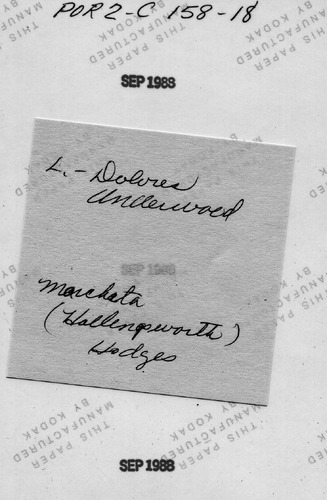 POR 2-C 158-18
THIS PAPER
MANUFACTURED
BY KODAK
SEP 1988
L. - Dolores
Underwood
SEP 1988
Marchata
(Hollingsworth)
Hodges
THIS PAPER
MANUFACTURED
BY KODAK
SEP 1988